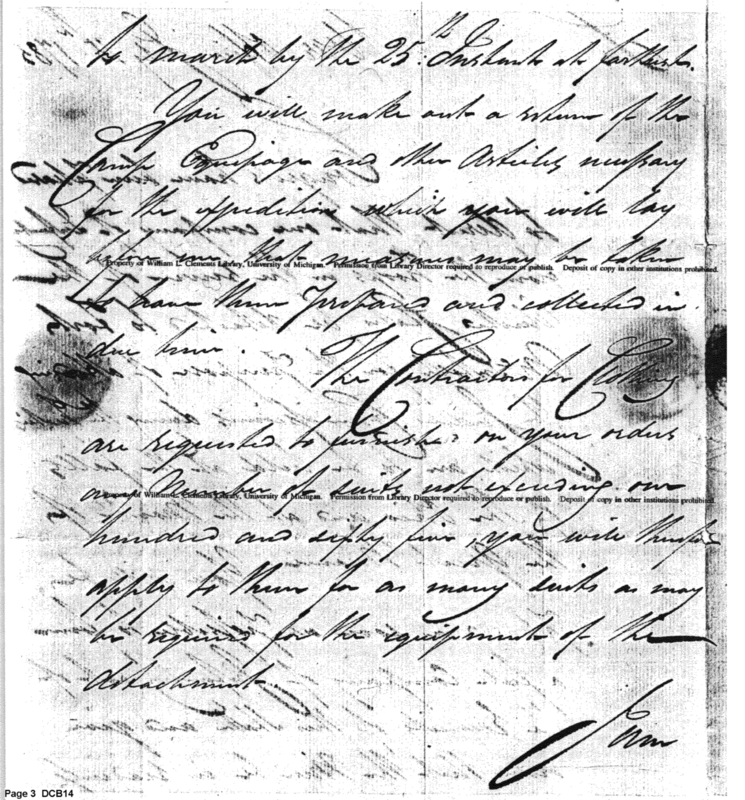 to march by the 25.th Instant at farthest.
You will make out a return of the
Camp Equipage and other Articles necessary
for the expedition which you will lay
before me that measures may be taken
Property of William L. Clements Library, University of Michigan. Permission from Library Director required to reproduce or publish. Deposit of copy in other institutions prohibited.
to have them prepared and collected in
due time. The Contractors for Clothing
are requested to furnish on your orders
any Number of suits not exceeding one
Property of William L. Clements Library, University of Michigan. Permission from Library Director required to reproduce or publish. Deposit of copy in other institutions prohibited.
hundred and sixty five, you will therefore
apply to them for as many suits as may
be required for the equipment of the
detachment.
I am
Page 3 DCB14